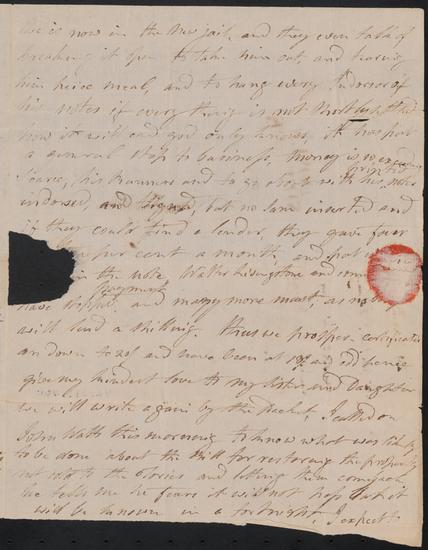 he is now in the New jail, and they even talk of
breaking it open to take him out, and tearing
him piece meal, and to hang every Indorser of
his notes if every thing is not
how it will end god only knows, it has put
a general stop to business, money is so exceeding
scarce, his runners used to go about with his printed notes
endorsed, and signed, but no sum inserted and
if they could find a lender, they gave four
per cent a month, and put
in the note, Walter Livingstone and some
have stopped payment and many more must, as no
will lend a shilling. thus we prosper. certificates
are down to 20/ and have been at
give my kindest love to my sister and Daughter
we will write again by the Packet, I called on
John Watts this morning to know what was likely
to be done about the Bill for restoring the property
not sold to the Tories and letting them come back
he tells me he fears it will not pass but it
will be known in a fortnight, I expect to